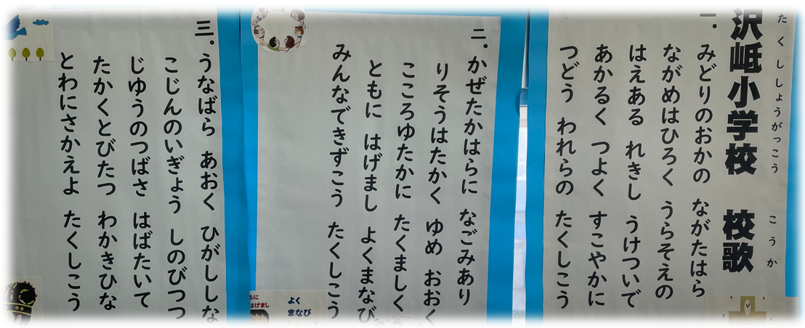 たくししょうがっこう　こうか
沢岻小学校　校歌
一．みどりのおかの　ながたはら
ながめはひろく　うらそえの
はえある　れきし　うけついで
あかるく　つよく　すこやかに
つどう　われらの　たくしこう
二．かぜたかはらに　なごみあり
りそうはたかく　ゆめ　おおく
こころゆたかに　たくましく
ともに　はげまし　よくまなび
みんなできずこう　たくしこう
三．うなばら　あおく　ひがししな
こじんのいぎょう　しのびつつ
じゆうのつばさ　はばたいて
たかくとびたつ　わかきひな
とわにさかえよ　たくしこう
よく
まなび